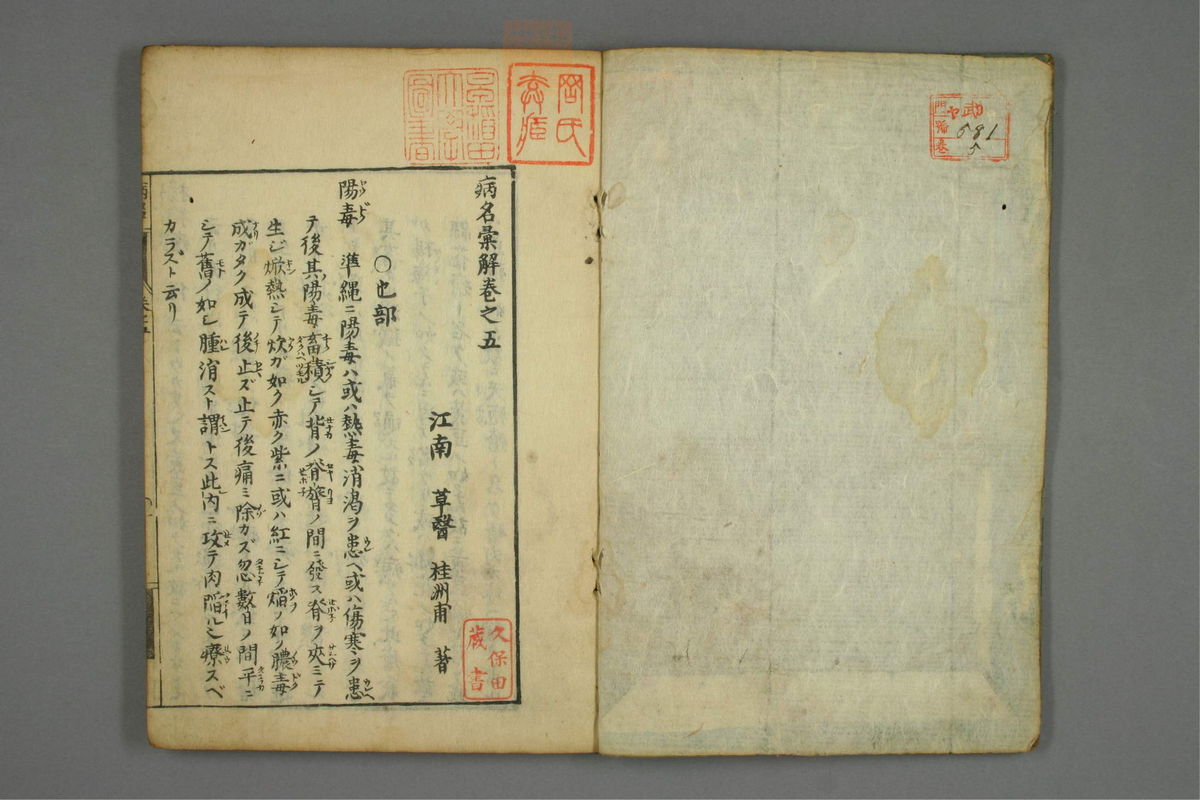 武
門
号
巻
581
5
久保田
蔵書
病名彙解巻之五
江南 草醫 桂洲甫 著
〇也部
陽毒 準縄ニ陽毒ハ或ハ熱毒消渇ヲ患ヘ或ハ傷寒ヲ患
テ後其陽毒畜積シテ背ノ脊膂ノ間ニ發ス脊ヲ夾ミテ
生ジ焮熱シテ炊ガ如ク赤ク紫ニ或ハ紅ニシテ焰ノ如ク膿毒
成ガタク成テ後止ズ止テ後痛ミ除カズ忽數日ノ間平ニ
シテ舊ノ如シ腫消スト謂トス此内ニ攻テ肉陷ル也療スベ
カラズト云リ